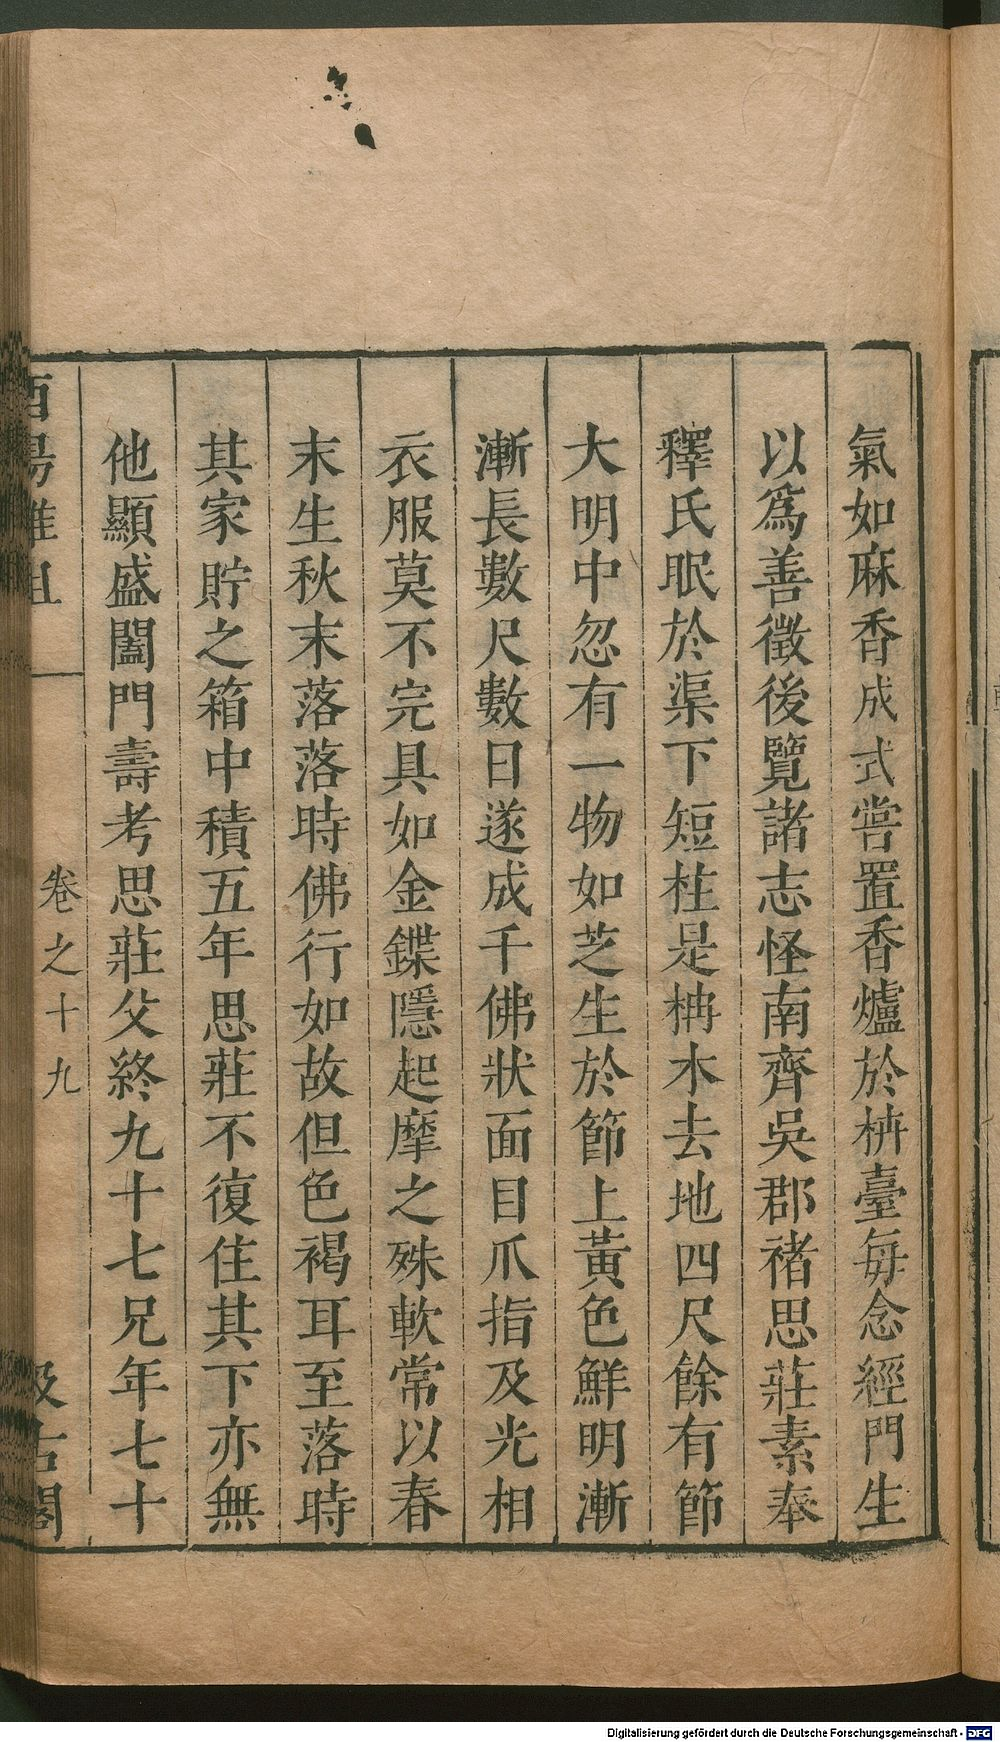 氣如麻香成式嘗置香爐於枬臺每念經門生
以爲善徵後覽諸志怪南齊吳郡褚思莊素奉
釋氏眠於渠下短柱是枬木去地四尺餘有節
大明中忽有一物如芝生於節上黃色鮮明漸
漸長數尺數日遂成千佛狀面目爪指及光相
衣服莫不完具如金鍱隱起摩之殊軟常以春
末生秋末落落時佛行如故但色褐耳至落時
其家貯之箱中積五年思莊不復住其下亦無
他顯盛闔門壽考思莊父終九十七兄年七十
酉陽雜俎
卷之十九
汲古閣
Digitalisierung gefördert durch die Deutsche Forschungsgemeinschaft - DFG